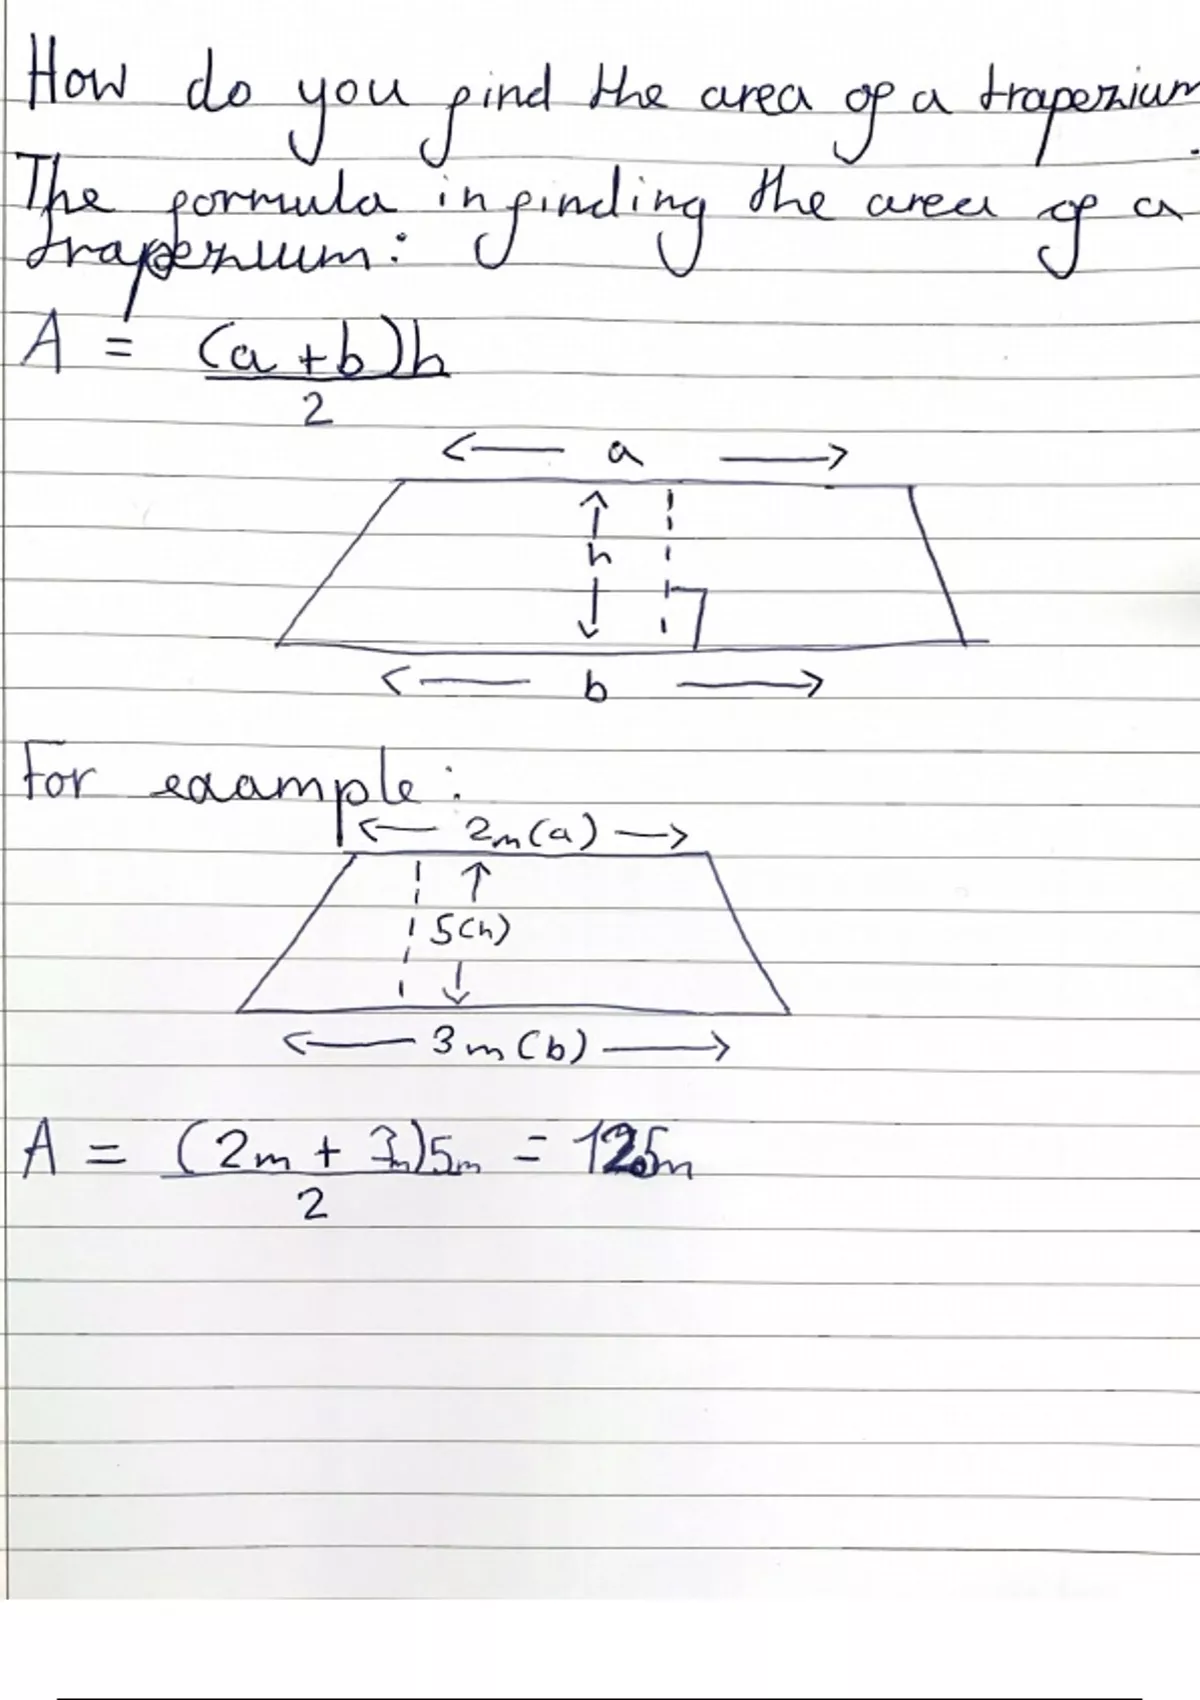 How do you find the area of a trapezium.
The formula in finding the area of a
trapezium:
A = (a + b)h
2
a
h
b
For example:
2m(a)
5(h)
3m(b)
A = (2m + 3m)5m = 12.5m
2